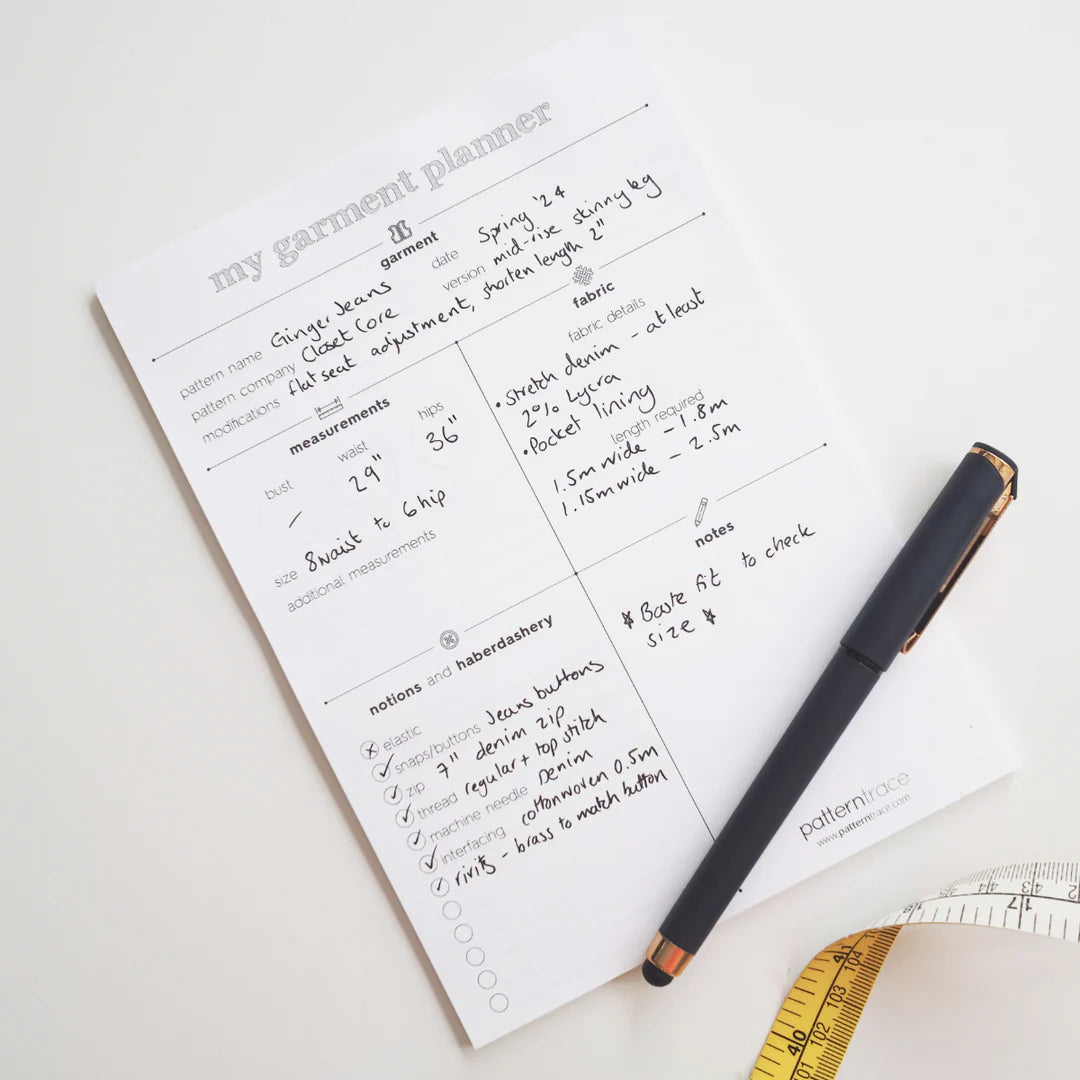 my garment planner
garment
pattern name Ginger Jeans date Spring '24
pattern company Closet Core version mid-rise skinny leg
modifications flat seat adjustment, shorten length 2"
measurements
bust waist hips
/ 29" 36"
size 8 waist to 6 hip
additional measurements
fabric
fabric details
• Stretch denim - at least
2% Lycra
• Pocket lining
length required
1.5m wide - 1.8m
1.15m wide - 2.5m
notions and haberdashery
elastic
snaps/buttons Jeans buttons
zip 7" denim zip
thread regular + top stitch
machine needle Denim
interfacing cotton woven 0.5m
rivits - brass to match button
notes
* Baste fit to check
size *
patterntrace
www.patterntrace.com
44 43 42
18 17
41 104
103
40 102
101